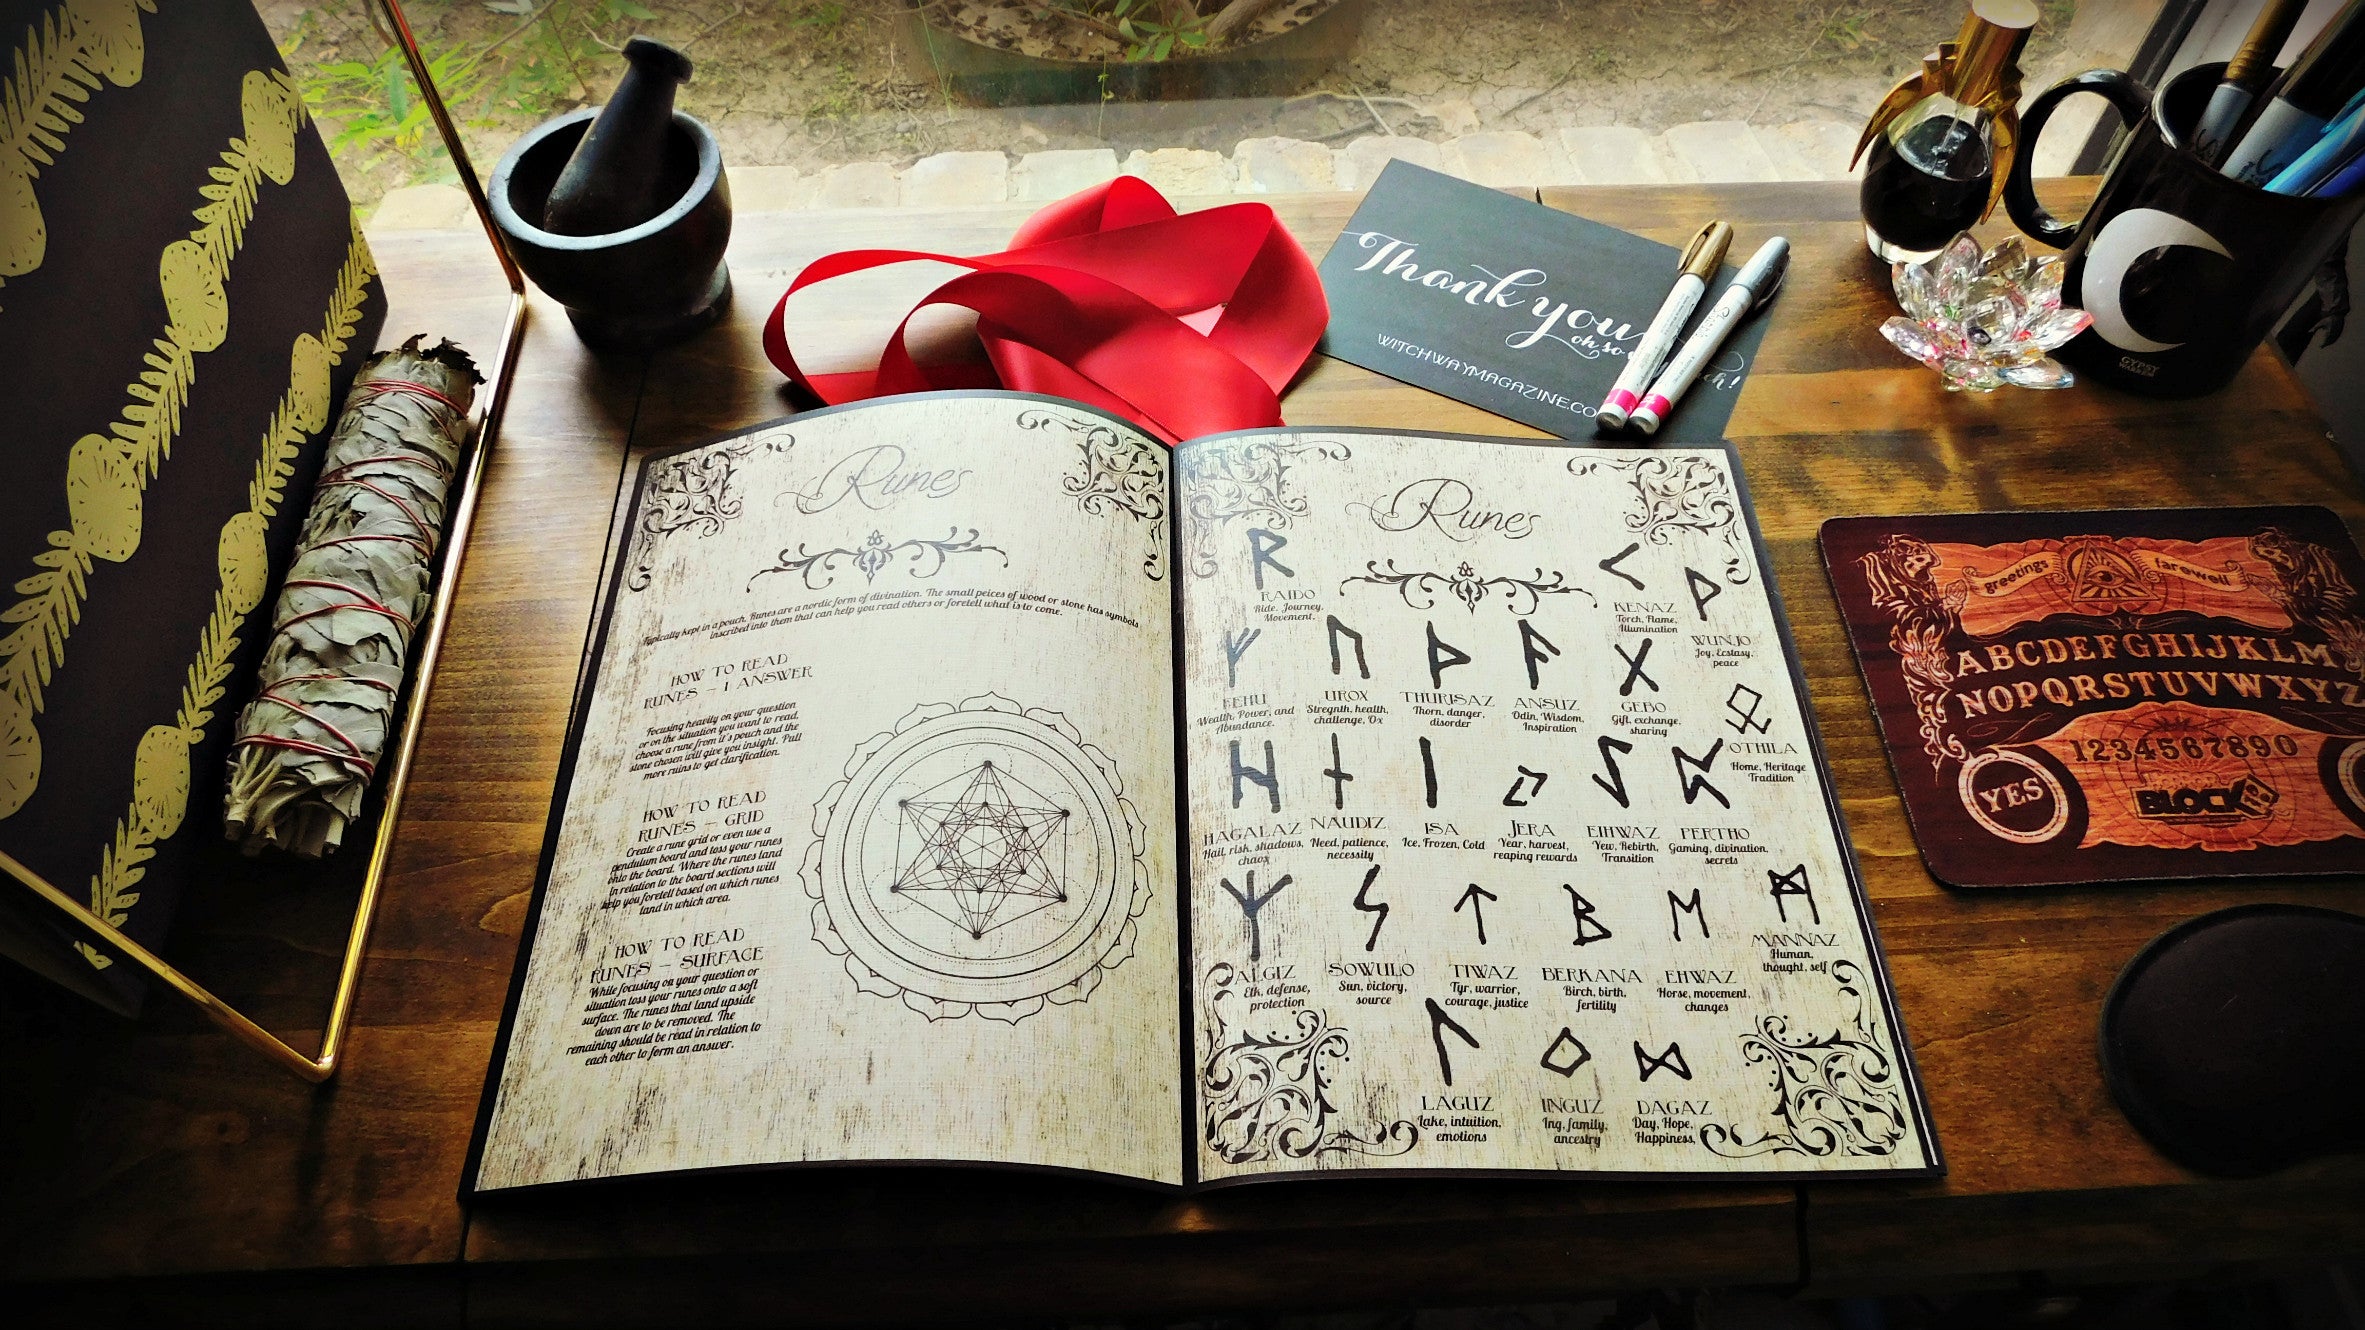 Runes
Typically kept in a pouch. Runes are a nordic form of divination. The small peices of wood or stone has symbols
inscribed into them that can help you read others or foretell what is to come.
HOW TO READ
RUNES - 1 ANSWER
Focusing heavity on your question
or on the situation you want to read,
choose a rune from it's pouch and the
stone chosen will give you insight. Pull
more ruins to get clarification.
HOW TO READ
RUNES - GRID
Create a rune grid or even use a
pendulum board and toss your runes
onto the board. Where the runes land
in relation to the board sections will
help you foretell based on which runes
land in which area.
HOW TO READ
RUNES - SURFACE
While focusing on your question or
situation toss your runes onto a soft
surface. The runes that land upside
down are to be removed. The
remaining should be read in relation to
each other to form an answer.
Runes
ᚱ
RAIDO
Ride. Journey.
Movement.
ᚲ
KENAZ
Torch, Flame,
Illumination
ᚹ
WUNJO
Joy, Ecstasy,
peace
ᚠ
FEHU
Wealth, Power, and
Abundance.
ᚢ
UROX
Stregnth, health,
challenge, Ox
ᚦ
THURISAZ
Thorn, danger,
disorder
ᚨ
ANSUZ
Odin, Wisdom,
Inspiration
ᚷ
GEBO
Gift, exchange,
sharing
ᛟ
OTHILA
Home, Heritage
Tradition
ᚺ
HAGALAZ
Hail, risk, shadows,
chaos
ᚾ
NAUDIZ
Need, patience,
necessity
ᛁ
ISA
Ice, Frozen, Cold
ᛃ
JERA
Year, harvest,
reaping rewards
ᛇ
EIHWAZ
Yew, Rebirth,
Transition
ᛈ
PERTHO
Gaming, divination,
secrets
ᛉ
ALGIZ
Elk, defense,
protection
ᛊ
SOWULO
Sun, victory,
source
ᛏ
TIWAZ
Tyr, warrior,
courage, justice
ᛒ
BERKANA
Birch, birth,
fertility
ᛖ
EHWAZ
Horse, movement,
changes
ᛗ
MANNAZ
Human,
thought, self
ᛚ
LAGUZ
Lake, intuition,
emotions
ᛜ
INGUZ
Ing, family,
ancestry
ᛞ
DAGAZ
Day, Hope,
Happiness,
Thank you
oh so
WITCHWAYMAGAZINE.CO
GYPSY
greetings
farewell
ABCDEFGHIJKLM
NOPQRSTUVWXYZ
1234567890
YES
BLOCK